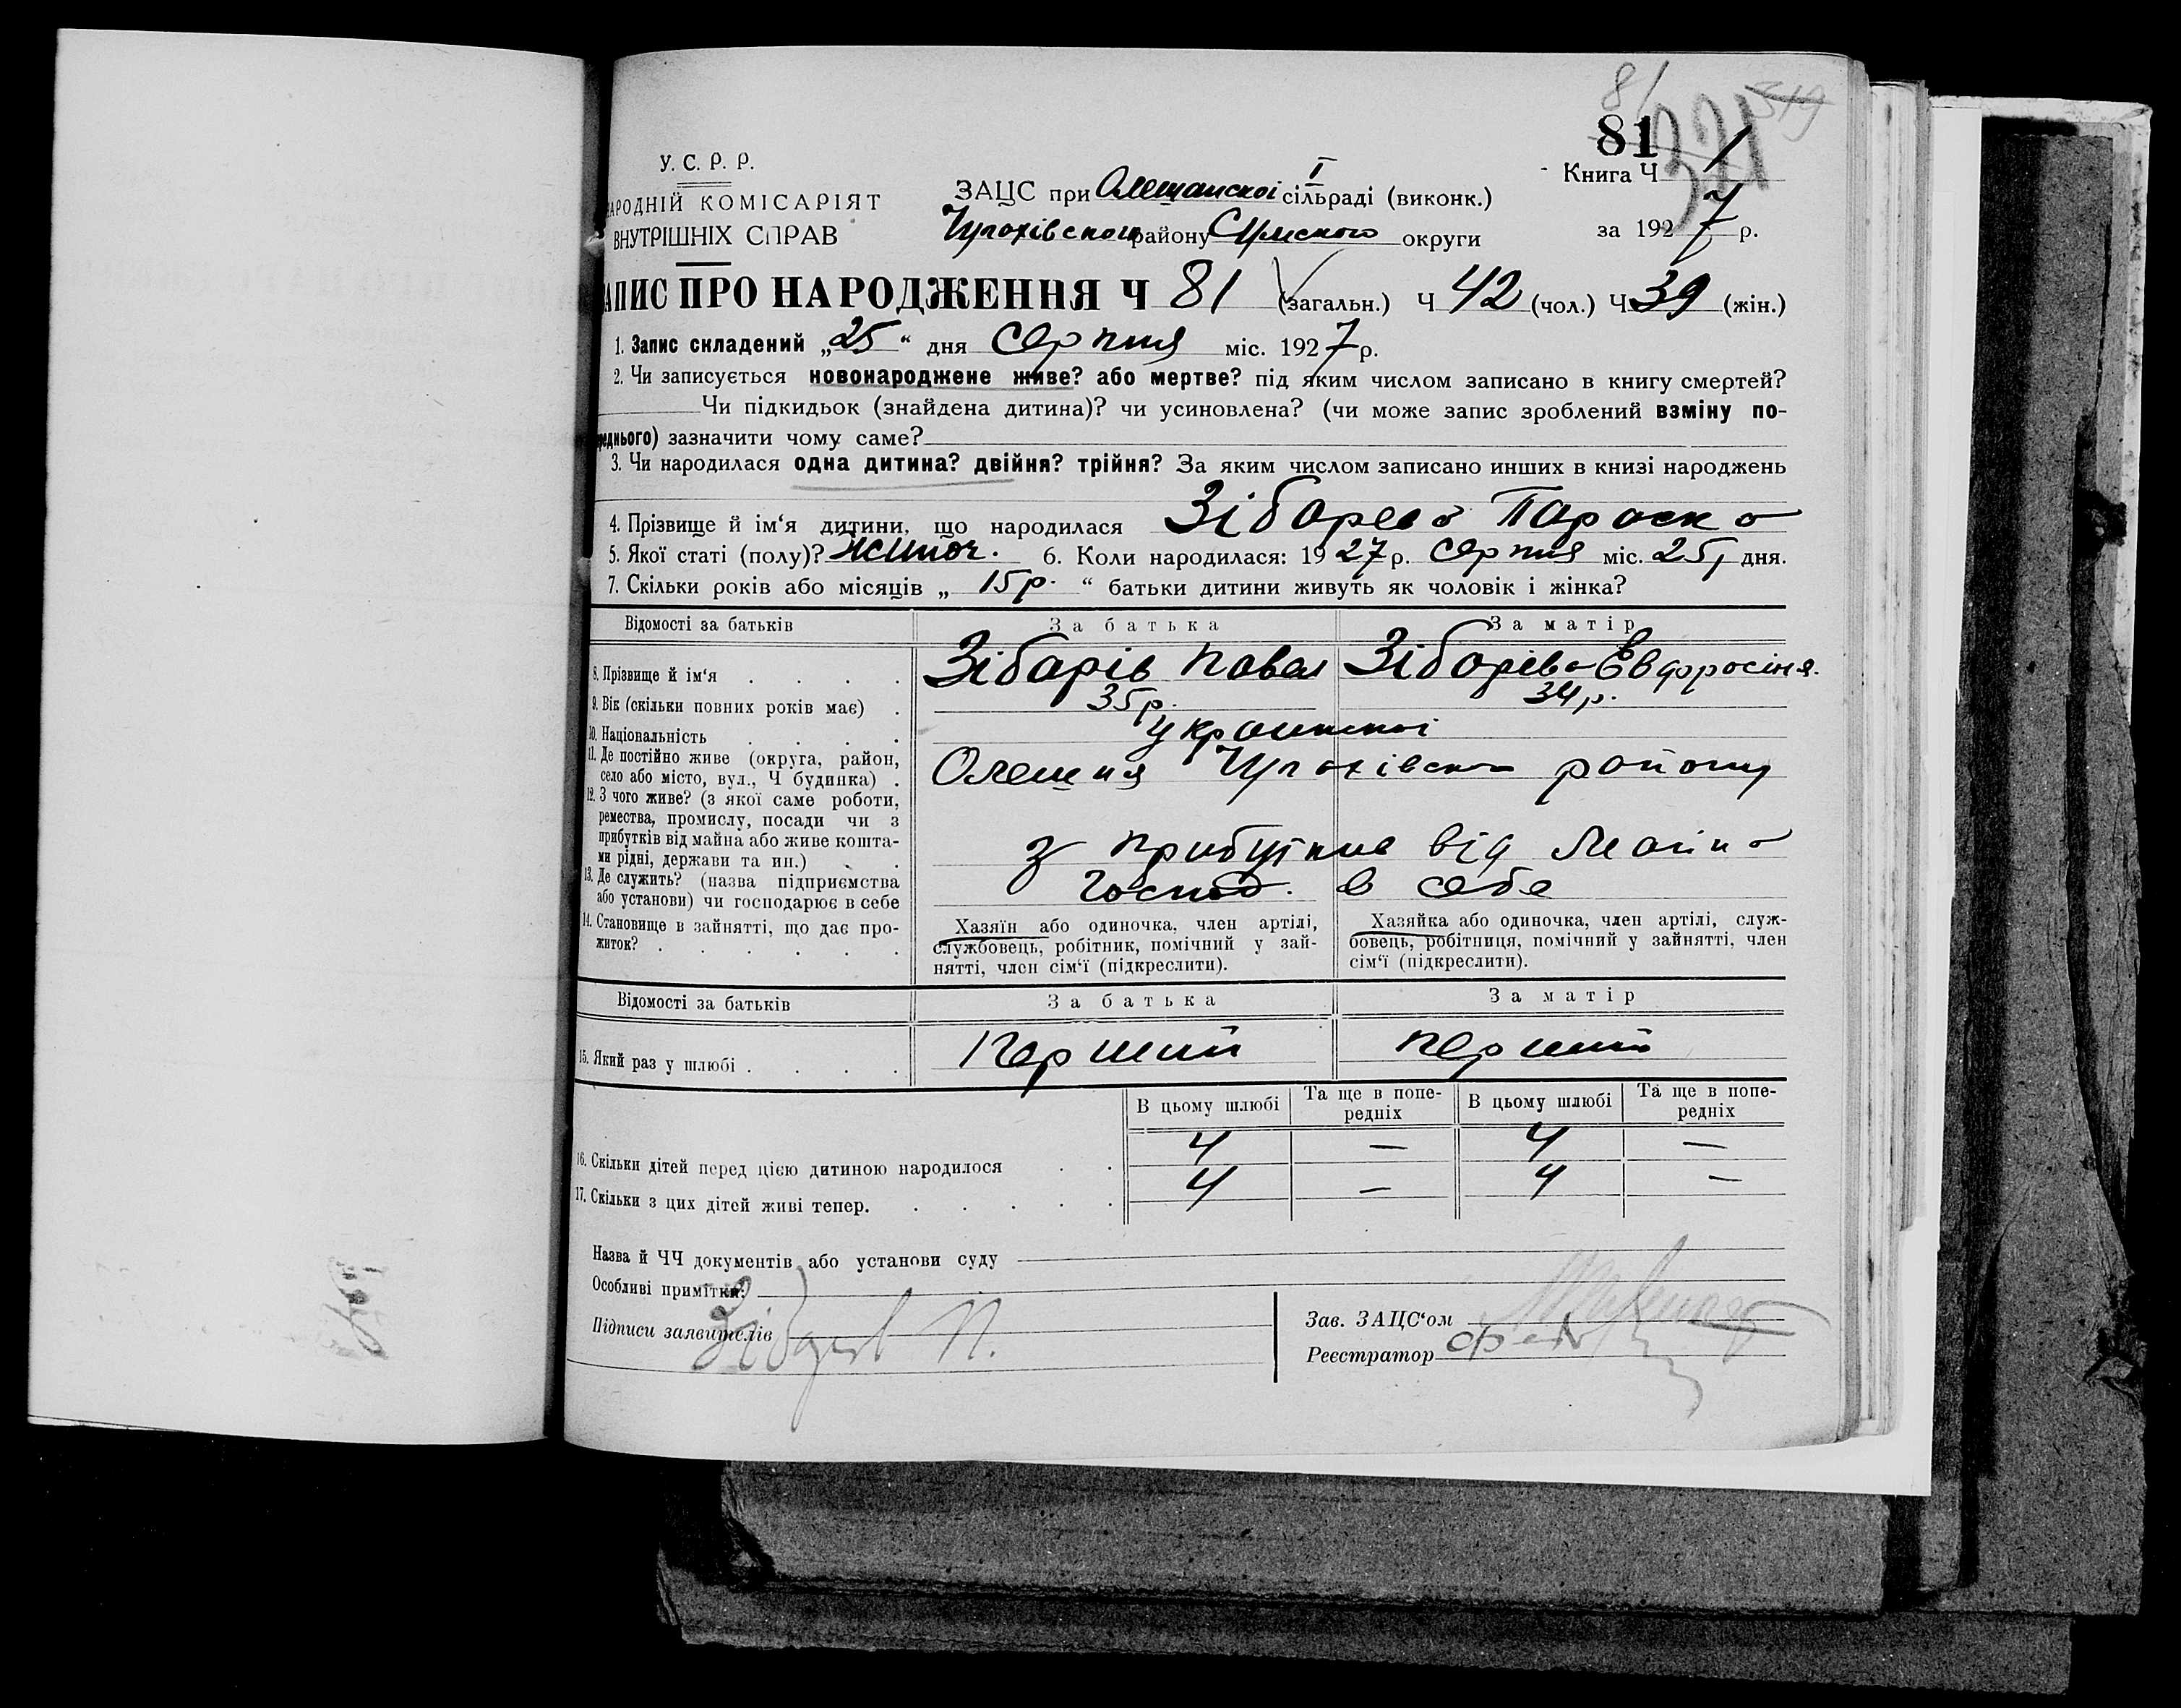 81 519
81 371
У. С. Р. Р.
НАРОДНІЙ КОМІСАРІЯТ
ВНУТРІШНІХ СПРАВ
ЗАЦС при Олешанскоі І сільраді (виконк.)
Чупахівського району Сумського округи
Книга Ч 1
за 1927 р.
АПИС ПРО НАРОДЖЕННЯ Ч 81 (загальн.) Ч 42 (чол.) Ч 39 (жін.)
1. Запис складений „25“ дня Серпня міс. 1927 р.
2. Чи записується новонароджене живе? або мертве? під яким числом записано в книгу смертей?
Чи підкидьок (знайдена дитина)? чи усиновлена? (чи може запис зроблений взміну по-
реднього) зазначити чому саме?
3. Чи народилася одна дитина? двійня? трійня? За яким числом записано инших в книзі народжень
4. Прізвище й ім‘я дитини, що народилася Зібарева Параска
5. Якої статі (полу)? Жиноч. 6. Коли народилася: 1927 р. Серпня міс. 25, дня.
7. Скільки років або місяців „ 15 р. “ батьки дитини живуть як чоловік і жінка?
Відомості за батьків За батька За матір
8. Прізвище й ім‘я . . . . Зібарів Павел Зібарева Евфросіня
9. Вік (скільки повних років має) . 35 р. 34 р.
10. Національність . . . . украинскоі
11. Де постійно живе (округа, район,
село або місто, вул., Ч будинка) . Олешня Чупахівська району
12. З чого живе? (з якої саме роботи,
ремества, промислу, посади чи з
прибутків від майна або живе кошта-
ми рідні, держави та ин.) . . з прибутків від маіна
13. Де служить? (назва підприємства
або установи) чи господарює в себе Господ. в себе
14. Становище в зайнятті, що дає про-
житок? . . . . . .
Хазяїн або одиночка, член артілі,
службовець, робітник, помічний у зай-
нятті, член сім‘ї (підкреслити).
Хазяйка або одиночка, член артілі, служ-
бовець, робітниця, помічний у зайнятті, член
сім‘ї (підкреслити).
Відомості за батьків За батька За матір
15. Який раз у шлюбі . . . . Перший перший
В цьому шлюбі Та ще в попе-
редніх В цьому шлюбі Та ще в попе-
редніх
16. Скільки дітей перед цією дитиною народилося . . 4 — 4 —
17. Скільки з цих дітей живі тепер. . . . . . 4 — 4 —
Назва й ЧЧ документів або установи суду
Особливі примітки:
Підписи заявителів Зібарев П.
Зав. ЗАЦС‘ом
Реєстратор